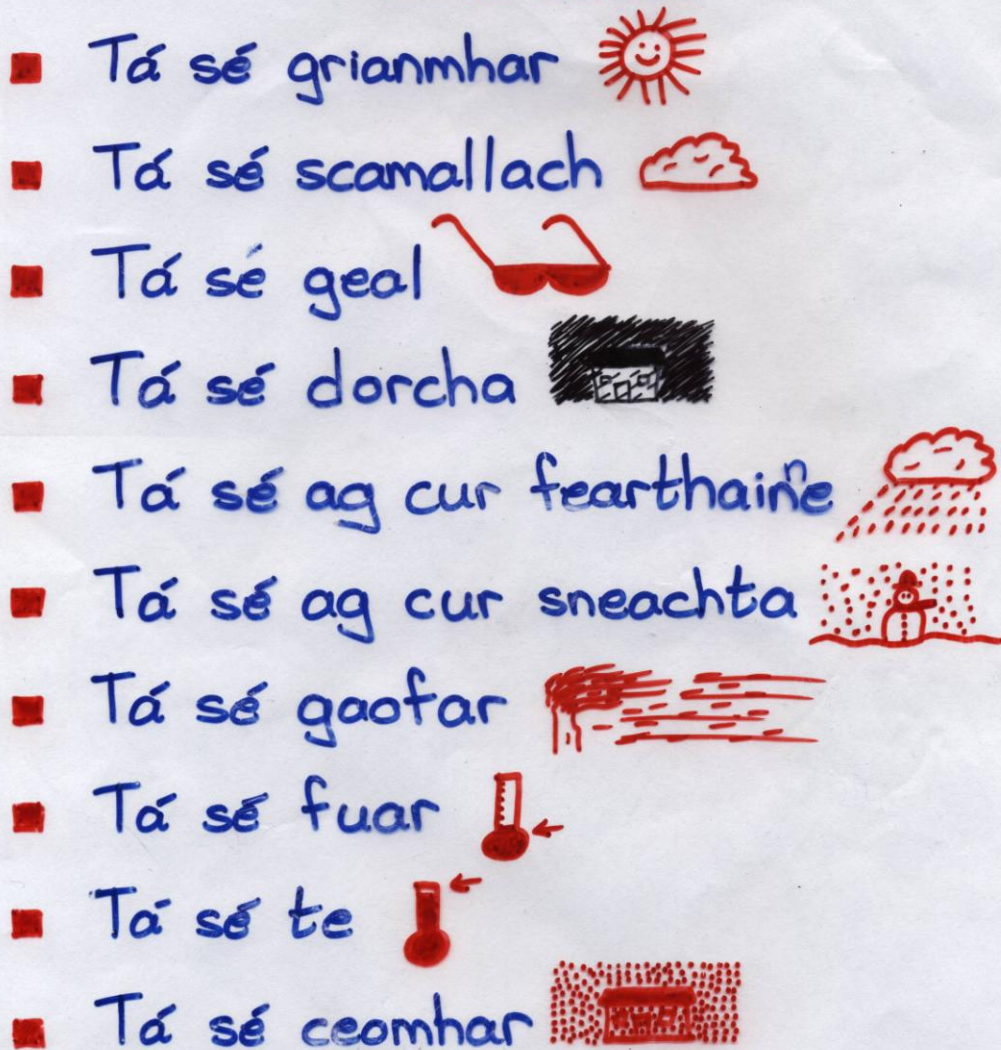 Tá sé grianmhar
Tá sé scamallach
Tá sé geal
Tá sé dorcha
Tá sé ag cur fearthainne
Tá sé ag cur sneachta
Tá sé gaofar
Tá sé fuar
Tá sé te
Tá sé ceomhar